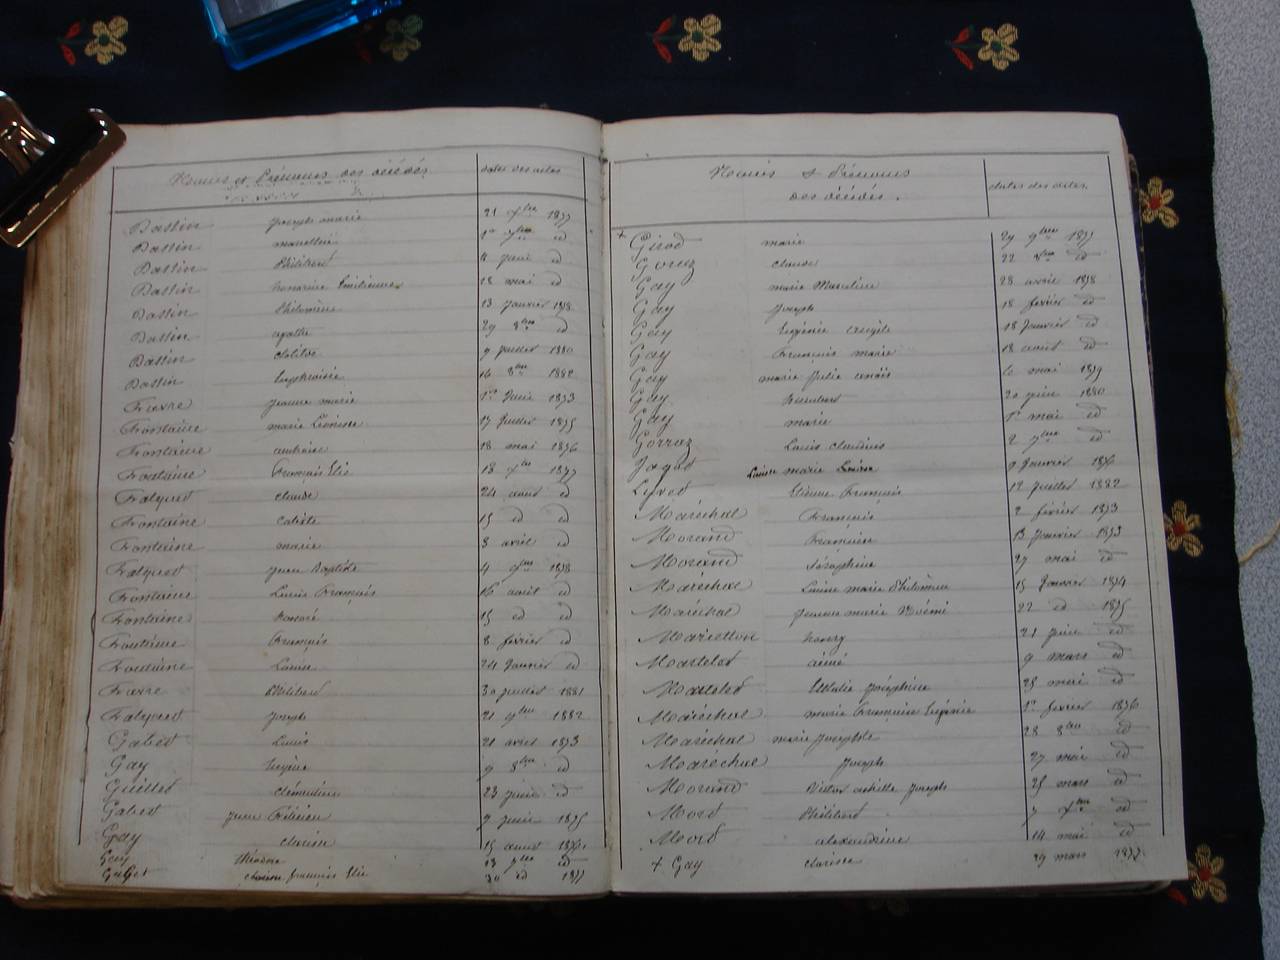 Noms et Prénoms des décédés. dates des actes
Dastin Joseph marie 21 xbre 1877
Dastin id
Dastin Philibert 4 juin id
Dastin honorine Emilienne 28 mai id
Dastin Philomène 13 Janvier 1878
Dastin agathe 29 8bre id
Dastin clotilde 9 juillet 1880
Dastin Euphroisie 16 1882
Fièvre Jeanne marie 1er Juin 1873
Fontaine marie Léonise 17 Juillet 1875
Fontaine 18 mai 1876
Fontaine François Elie 18 xbre 1877
Falquet claude 24 aout id
Fontaine calixte 15 id id
Fontaine marie 3 avril id
Falquet Jean Baptiste 4 1878
Fontaine Louis François 16 août id
Fontaine honoré 15 id id
Fontaine François 8 février id
Fontaine Louise 24 Janvier id
Fièvre Philibert 30 juillet 1881
Falquet Joseph 21 9bre 1882
Gabet Louis 21 avril 1873
Gay Eugène 9 8bre id
Guillet clémentine 23 juin id
Gabet Jean 7 Juin 1875
Gay clarisse 15 aout 1876
Gay 23 7bre id
Gabet François Elie 30 id 1877
Noms & Prénoms
des décédés. dates des actes
+ Girod marie 29 9bre 1877
Gorraz claude 22 id
Gay marie Marceline 28 avril 1878
Gay Joseph 18 février id
Gay Eugénie 18 Janvier id
Gay François marie 18 aout id
Gay marie Julie anaïs 6 mai 1879
Gay 20 juin 1880
Gay marie 1er mai id
Gorraz Louis claudius 2 7bre id
Jaquet Louise marie Louise 9 Janvier 1876
Etienne François 12 Juillet 1882
Maréchal François 2 février 1873
Morand Françoise 13 Janvier 1873
Morand Séraphine 27 mai id
Maréchal Louise marie Philomène 15 Janvier 1874
Maréchal Jeanne marie Noémi 22 id 1875
henry 21 juin id
Martelet aimé 9 mars id
Martelet Joséphine 25 mai id
Maréchal marie Françoise Eugénie 1er février 1876
Maréchal marie Josephte 28 8bre id
Maréchal Joseph 27 mai id
Morand Victor achille Joseph 25 mars id
Mord Philibert 7 xbre id
Mord alexandrine 14 mai id
+ Gay clarisse 29 mars 1877